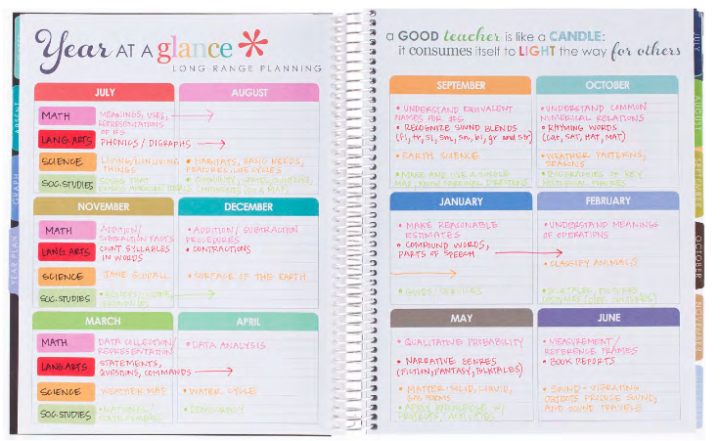 Year AT A glance
LONG-RANGE PLANNING
JULY
AUGUST
MATH
MEANINGS, USES,
REPRESENTATIONS
OF #S
LANG.ARTS
PHONICS / DIGRAPHS
SCIENCE
LIVING/NONLIVING
THINGS
• HABITATS, BASIC NEEDS,
LIFE CYCLES
SOC.STUDIES
NOVEMBER
DECEMBER
MATH
ADDITION/
SUBTRACTION FACTS
• ADDITION/ SUBTRACTION
PROCEDURES
LANG.ARTS
COUNT SYLLABLES
IN WORDS
• CONTRACTIONS
SCIENCE
JANE GOODALL
• SURFACE OF THE EARTH
SOC.STUDIES
MARCH
APRIL
MATH
DATA COLLECTION/
REPRESENTATION
• DATA ANALYSIS
LANG.ARTS
STATEMENTS,
QUESTIONS, COMMANDS
SCIENCE
WEATHER
• WATER CYCLE
SOC.STUDIES
• DEMOCRACY
a GOOD teacher is like a CANDLE:
it consumes itself to LIGHT the way for others
SEPTEMBER
OCTOBER
• UNDERSTAND EQUIVALENT
NAMES FOR #S
• RECOGNIZE SOUND BLENDS
(fl, tr, sl, sm, sn, bl, gr and str)
• EARTH SCIENCE
MAKE AND USE A SIMPLE
MAP, KNOW CARDINAL DIRECTIONS
• UNDERSTAND COMMON
NUMERICAL RELATIONS
• RHYMING WORDS
(Cat, SAT, HAT, MAT)
• WEATHER PATTERNS,
SEASONS
• BIOGRAPHIES OF KEY
HISTORICAL FIGURES
JANUARY
FEBRUARY
• MAKE REASONABLE
ESTIMATES
• COMPOUND WORDS,
PARTS OF SPEECH
• GOODS/SERVICES
• UNDERSTAND MEANINGS
OF OPERATIONS
• CLASSIFY ANIMALS
MAY
JUNE
• QUALITATIVE PROBABILITY
• NARRATIVE GENRES
(FICTION, FANTASY, FAIRYTALES)
• MATTER: SOLID, LIQUID,
GAS
• MEASUREMENT/
REFERENCE FRAMES
• BOOK REPORTS
• SOUND - VIBRATING
OBJECTS PRODUCE SOUND,
AND SOUND TRAVELS
GRAPH
YEAR PLAN
JULY
AUGUST
SEPTEMBER
OCTOBER
NOVEMBER